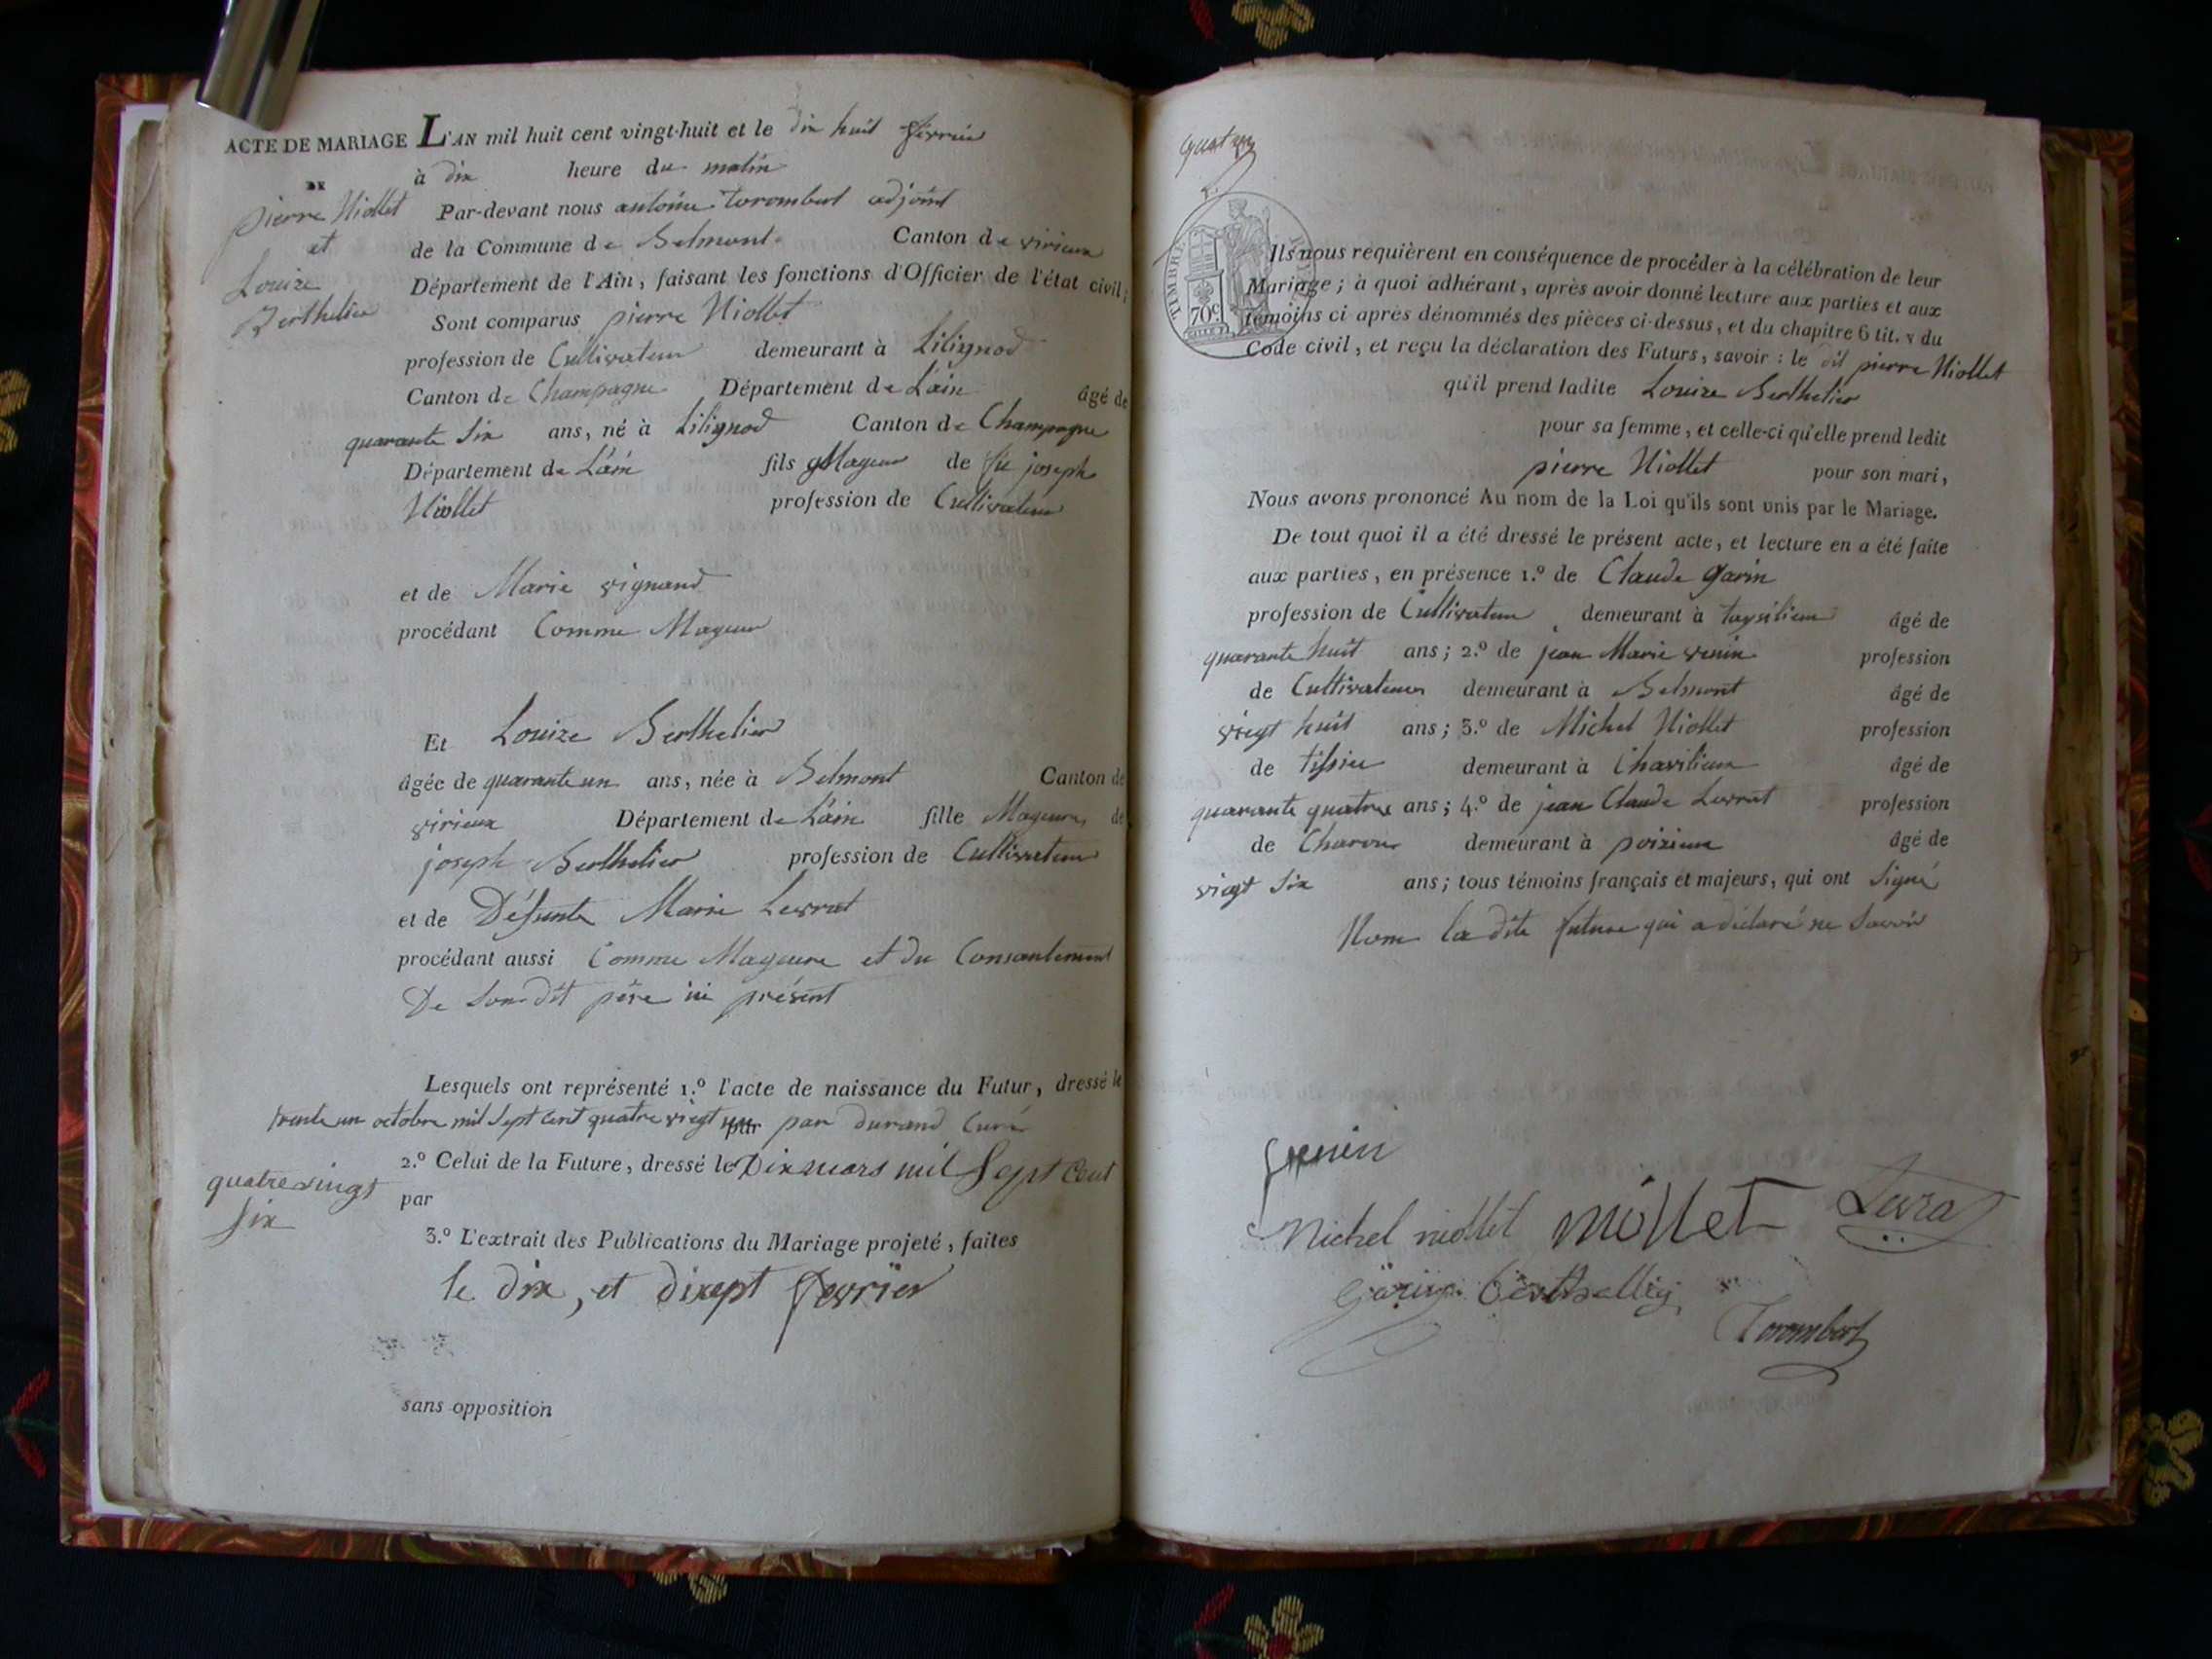 ACTE DE MARIAGE L'AN mil huit cent vingt-huit et le dix huit février
à dix heure du matin
DE
pierre Niollet
et
Louize
Berthelier
Par-devant nous antoine torombert adjoint
de la Commune de Belmont Canton de virieux
Département de l'Ain, faisant les fonctions d'Officier de l'état civil;
Sont comparus pierre Niollet
profession de Cultivateur demeurant à Lilignod
Canton de Champagne Département de L'ain âgé de
quarante Six ans, né à Lilignod Canton de Champagne
Département de L'ain fils Mageur de fû joseph
Niollet profession de Cultivateur
et de Marie vignand
procédant Comme Mageur
Et Louize Berthelier
âgée de quarante un ans, née à Belmont Canton de
virieux Département de L'ain fille Mageure de
joseph Berthelier profession de Cultivateur
et de Défunte Marie Levrat
procédant aussi Comme Mageure et du Consantement
De Son dit père ici présent
Lesquels ont représenté 1.º l'acte de naissance du Futur, dressé le
trente un octobre mil Sept Cent quatre vingt un par durand Curé
2.º Celui de la Future, dressé le Dix mars mil Sept Cent
quatre vingt
Six
par
3.º L'extrait des Publications du Mariage projeté, faites
le dix, et dixept fevrier
sans opposition
TIMBRE
70c
Ils nous requièrent en conséquence de procéder à la célébration de leur
Mariage; à quoi adhérant, après avoir donné lecture aux parties et aux
témoins ci après dénommés des pièces ci-dessus, et du chapitre 6 tit. v du
Code civil, et reçu la déclaration des Futurs, savoir: le dit pierre Niollet
qu'il prend ladite Louize Berthelier
pour sa femme, et celle-ci qu'elle prend ledit
pierre Niollet pour son mari,
Nous avons prononcé Au nom de la Loi qu'ils sont unis par le Mariage.
De tout quoi il a été dressé le présent acte, et lecture en a été faite
aux parties, en présence 1.º de Claude garin
profession de Cultivateur demeurant à taysilieu âgé de
quarante huit ans; 2.º de jean Marie genin profession
de Cultivateur demeurant à Belmont âgé de
vingt huit ans; 3.º de Michel Niollet profession
de tissieu demeurant à Chavilieux âgé de
quarante quatre ans; 4.º de jean Claude Levrat profession
de Charon demeurant à poizieux âgé de
vingt Six ans; tous témoins français et majeurs, qui ont Signé
Nom la dite future qui a déclaré ne Savoir
genin
Michel niollet niollet Levra
Garin Berthellier
Torombert